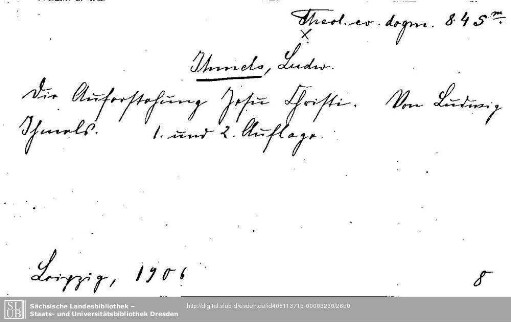 Theol. ev. dogm. 845 m.
Ihmels, Ludw.
Die Auferstehung Jesu Christi. Von Ludwig
Ihmels. 1. und 2. Auflage.
Leipzig, 1906
8
SLUB
Sächsische Landesbibliothek –
Staats- und Universitätsbibliothek Dresden